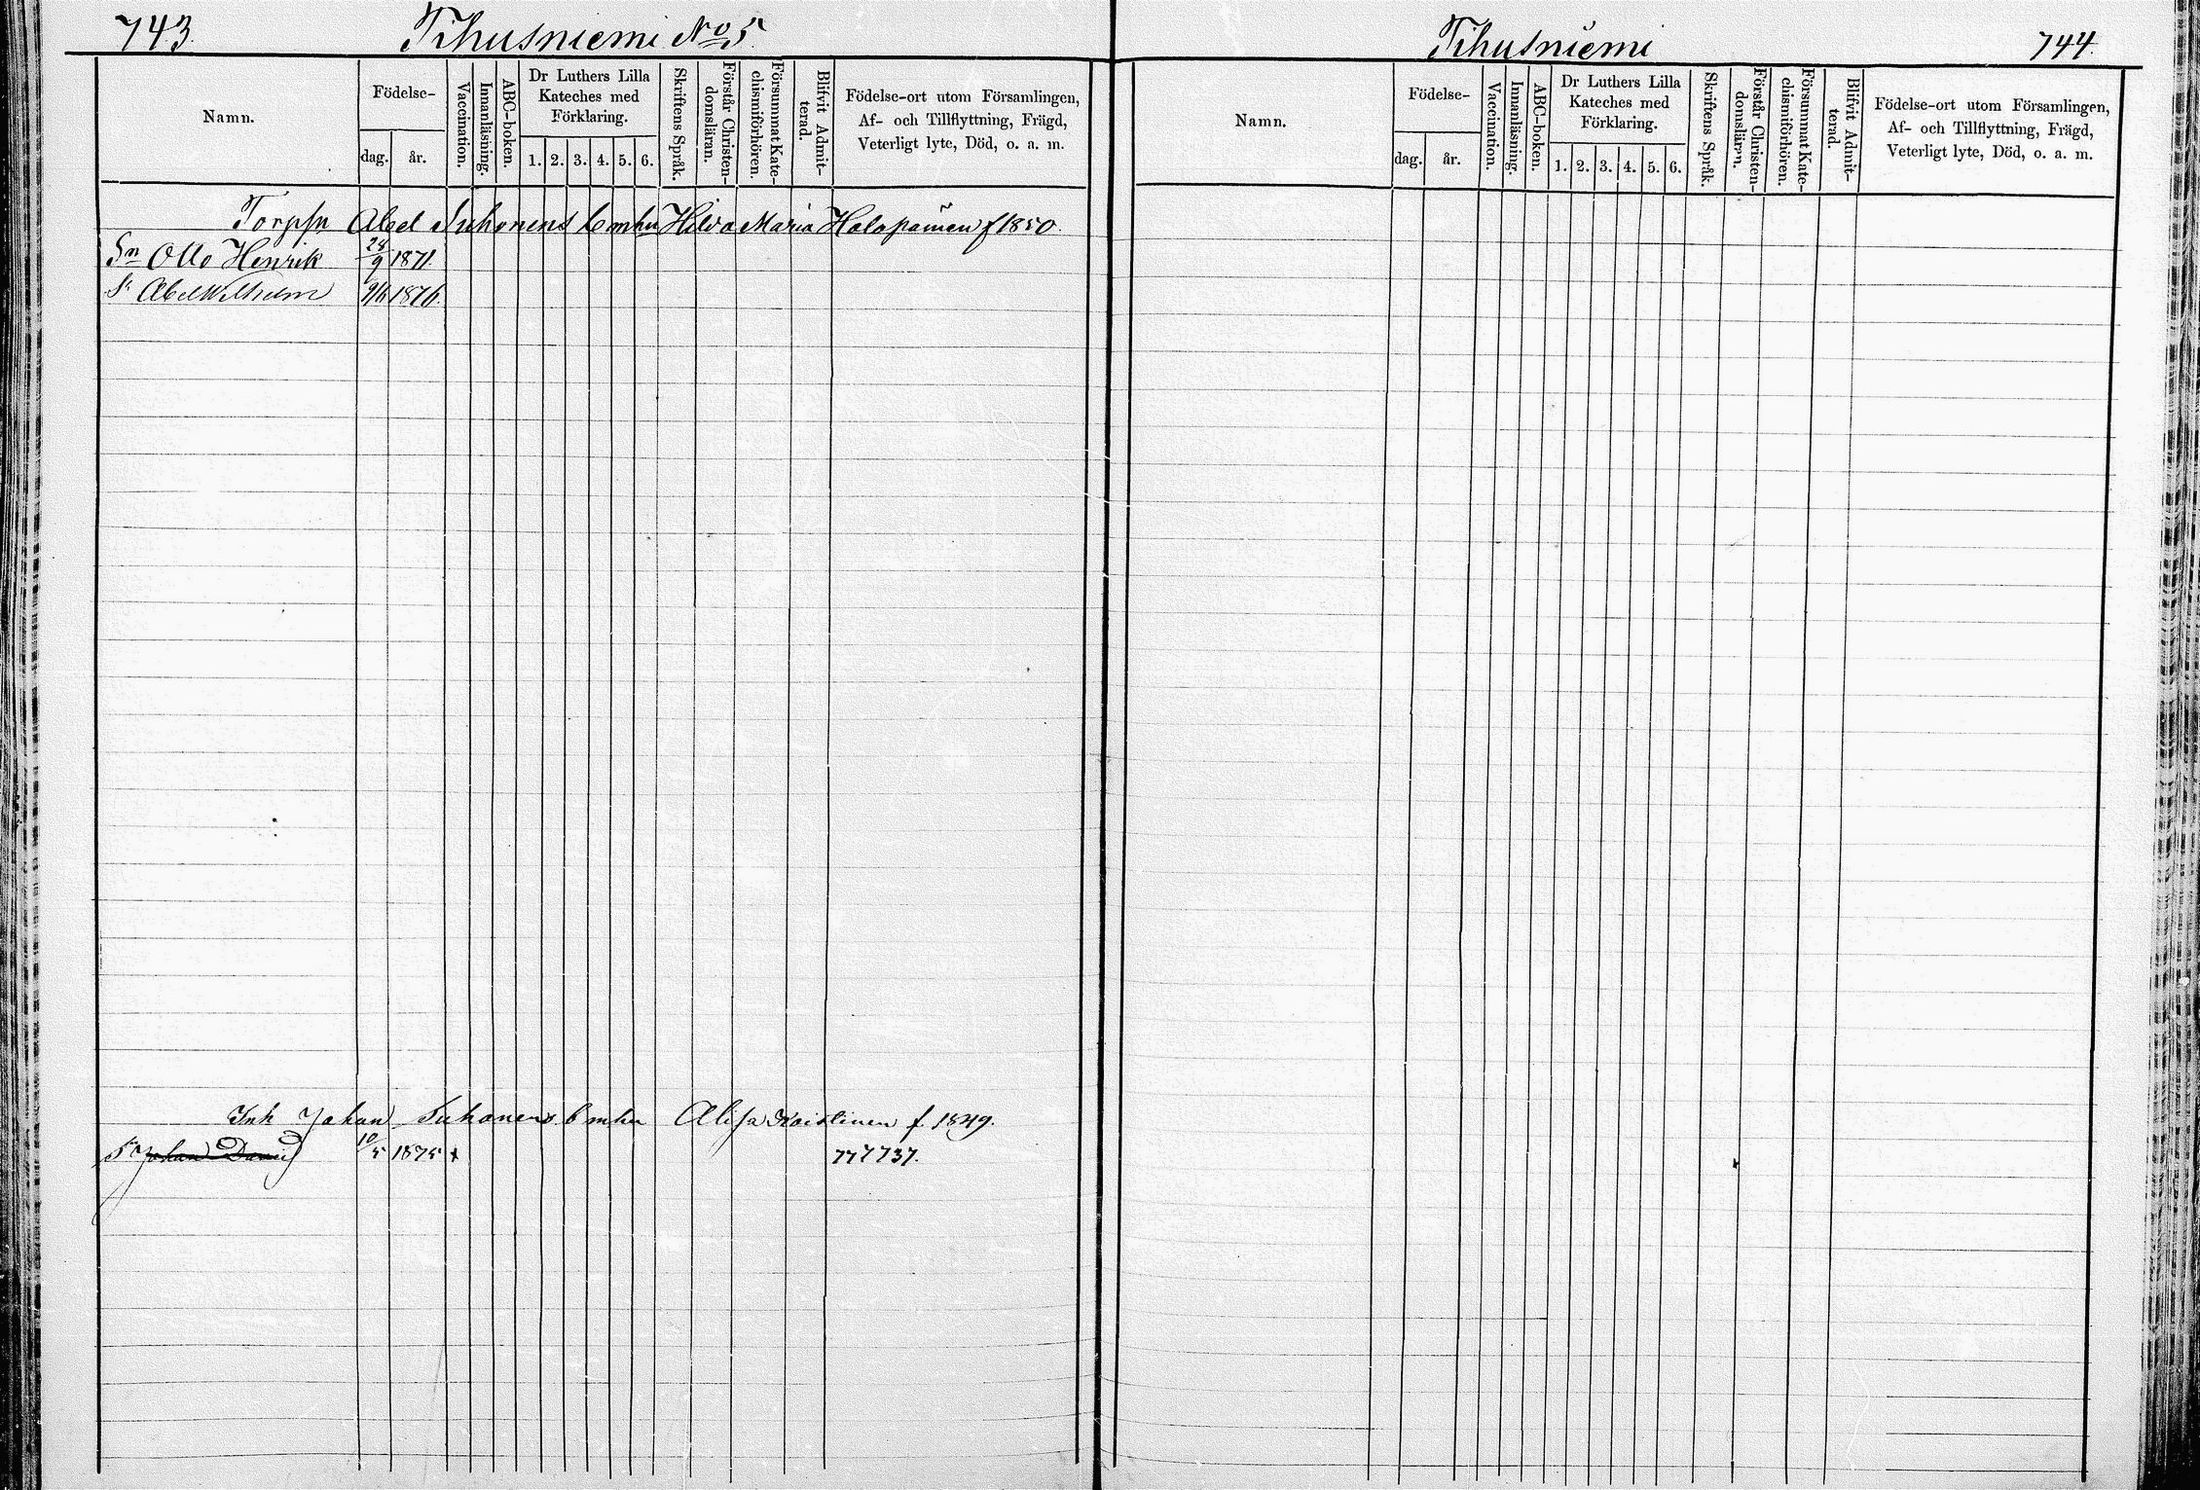 743. Tihusniemi No 5.
Namn.
Födelse-
dag.
år.
Vaccination.
Innanläsning.
ABC-boken.
Dr Luthers Lilla
Kateches med
Förklaring.
1. 2. 3. 4. 5. 6.
Skriftens Språk.
Förstår Christen-
domsläran.
Försummat Kate-
chismiförhören.
Blifvit Admit-
terad.
Födelse-ort utom Församlingen,
Af- och Tillflyttning, Frägd,
Veterligt lyte, Död, o. a. m.
Torpsn Abel Suhonens h Hilda Maria Holopainen f 1850.
Sn Otto Henrik 24/9 1871
S. Abel Wilhelm 9/6 1876.
Inh Johan Suhonens h Alisa Koistinen f. 1849.
S Johan Daniel 10/5 1875 + 777737.
Tihusniemi 744.
Namn.
Födelse-
dag.
år.
Vaccination.
Innanläsning.
ABC-boken.
Dr Luthers Lilla
Kateches med
Förklaring.
1. 2. 3. 4. 5. 6.
Skriftens Språk.
Förstår Christen-
domsläran.
Försummat Kate-
chismiförhören.
Blifvit Admit-
terad.
Födelse-ort utom Församlingen,
Af- och Tillflyttning, Frägd,
Veterligt lyte, Död, o. a. m.